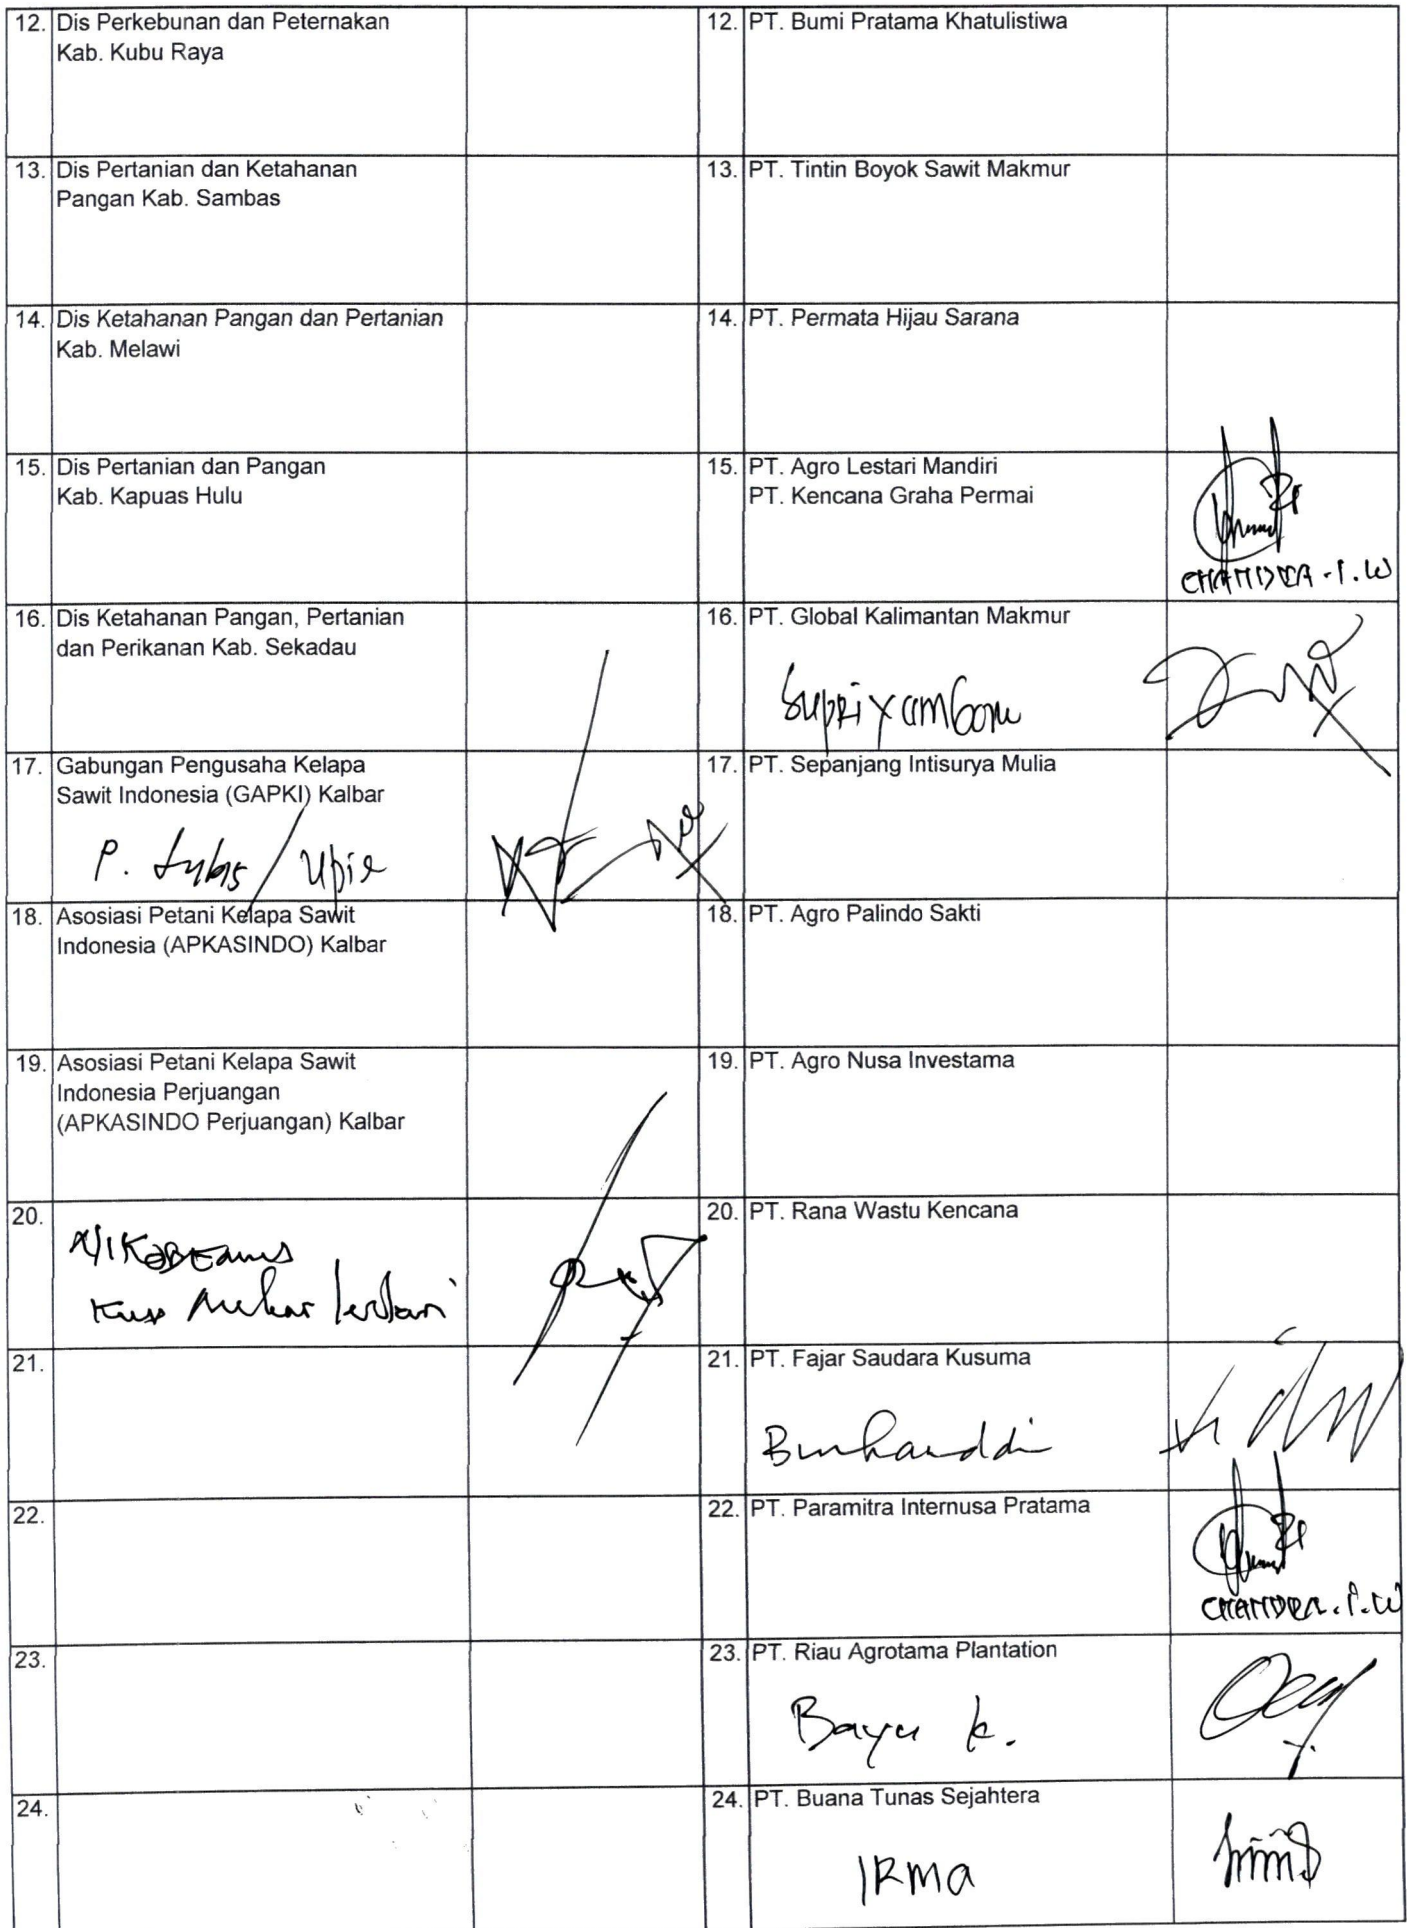 12. Dis Perkebunan dan Peternakan
Kab. Kubu Raya
12. PT. Bumi Pratama Khatulistiwa
13. Dis Pertanian dan Ketahanan
Pangan Kab. Sambas
13. PT. Tintin Boyok Sawit Makmur
14. Dis Ketahanan Pangan dan Pertanian
Kab. Melawi
14. PT. Permata Hijau Sarana
15. Dis Pertanian dan Pangan
Kab. Kapuas Hulu
15. PT. Agro Lestari Mandiri
PT. Kencana Graha Permai
CHANDRA . I. W
16. Dis Ketahanan Pangan, Pertanian
dan Perikanan Kab. Sekadau
16. PT. Global Kalimantan Makmur
17. Gabungan Pengusaha Kelapa
Sawit Indonesia (GAPKI) Kalbar
P. Lubis /
17. PT. Sepanjang Intisurya Mulia
18. Asosiasi Petani Kelapa Sawit
Indonesia (APKASINDO) Kalbar
18. PT. Agro Palindo Sakti
19. Asosiasi Petani Kelapa Sawit
Indonesia Perjuangan
(APKASINDO Perjuangan) Kalbar
19. PT. Agro Nusa Investama
20.
20. PT. Rana Wastu Kencana
21.
21. PT. Fajar Saudara Kusuma
22.
22. PT. Paramitra Internusa Pratama
CHANDRA . I. W
23.
23. PT. Riau Agrotama Plantation
Bayu K.
24.
24. PT. Buana Tunas Sejahtera
IRMA